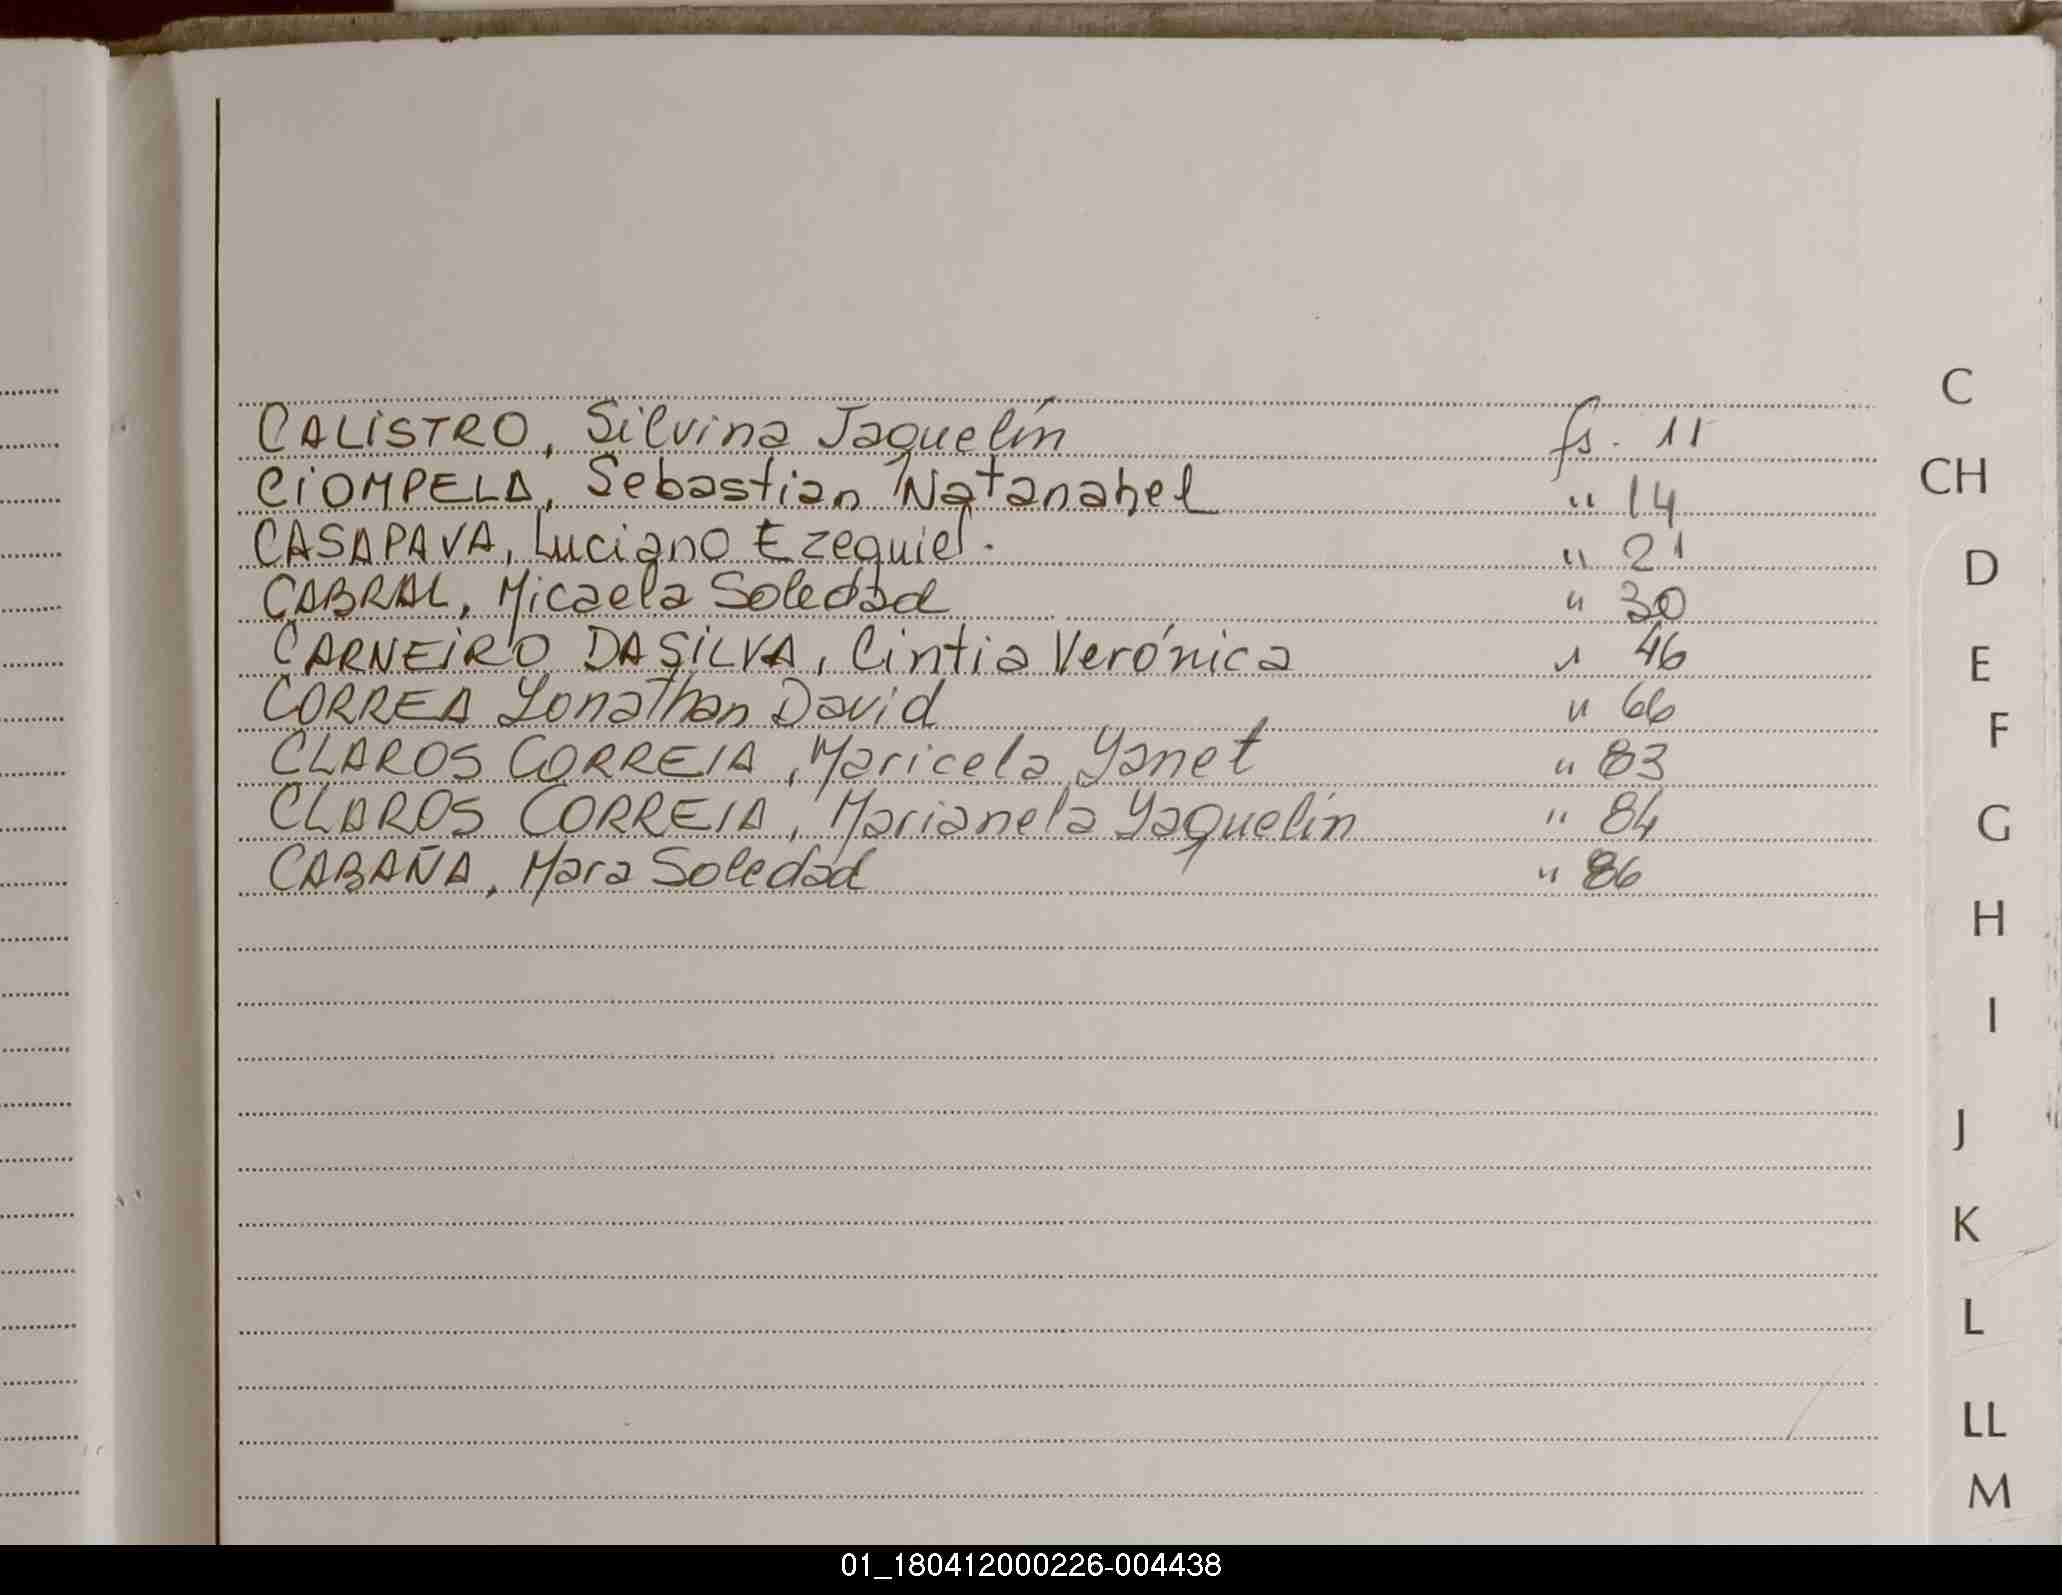 CALISTRO, Silvina Jaquelín fs. 11
CIOMPELA, Sebastian Natanahel " 14
CASAPAVA, Luciano Ezequiel. " 21
CABRAL, Micaela Soledad " 30
CARNEIRO DA SILVA, Cintia Verónica " 46
CORREA Yonathan David " 66
CLAROS CORREIA, Maricela Yanet " 83
CLAROS CORREIA, Marianela Yaquelín " 84
CABAÑA, Mara Soledad " 86
C
CH
D
E
F
G
H
I
J
K
L
LL
M
01_180412000226-004438